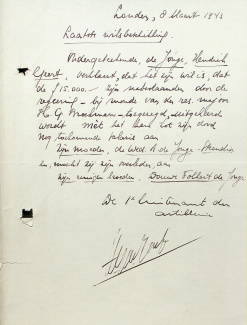 Londen, 8 Maart 1943
Laatste wilsbeschikking.
Ondergeteekende, de Jonge, Hendrik
Geert, verklaart, dat het zijn wil is, dat
de ƒ 15.000.- zijn nabestaanden door de
regeering - bij monde van den res. majoor
K. G. - toegezegd, uitgekeerd
wordt met het hem tot zijn dood
nog toekomende salaris aan
zijn moeder, de wed. de Jonge-
en, mocht zij zijn overleden, aan
zijn eenigen broeder, Douwe Folkert de Jonge.
De 1e luitenant der
artillerie